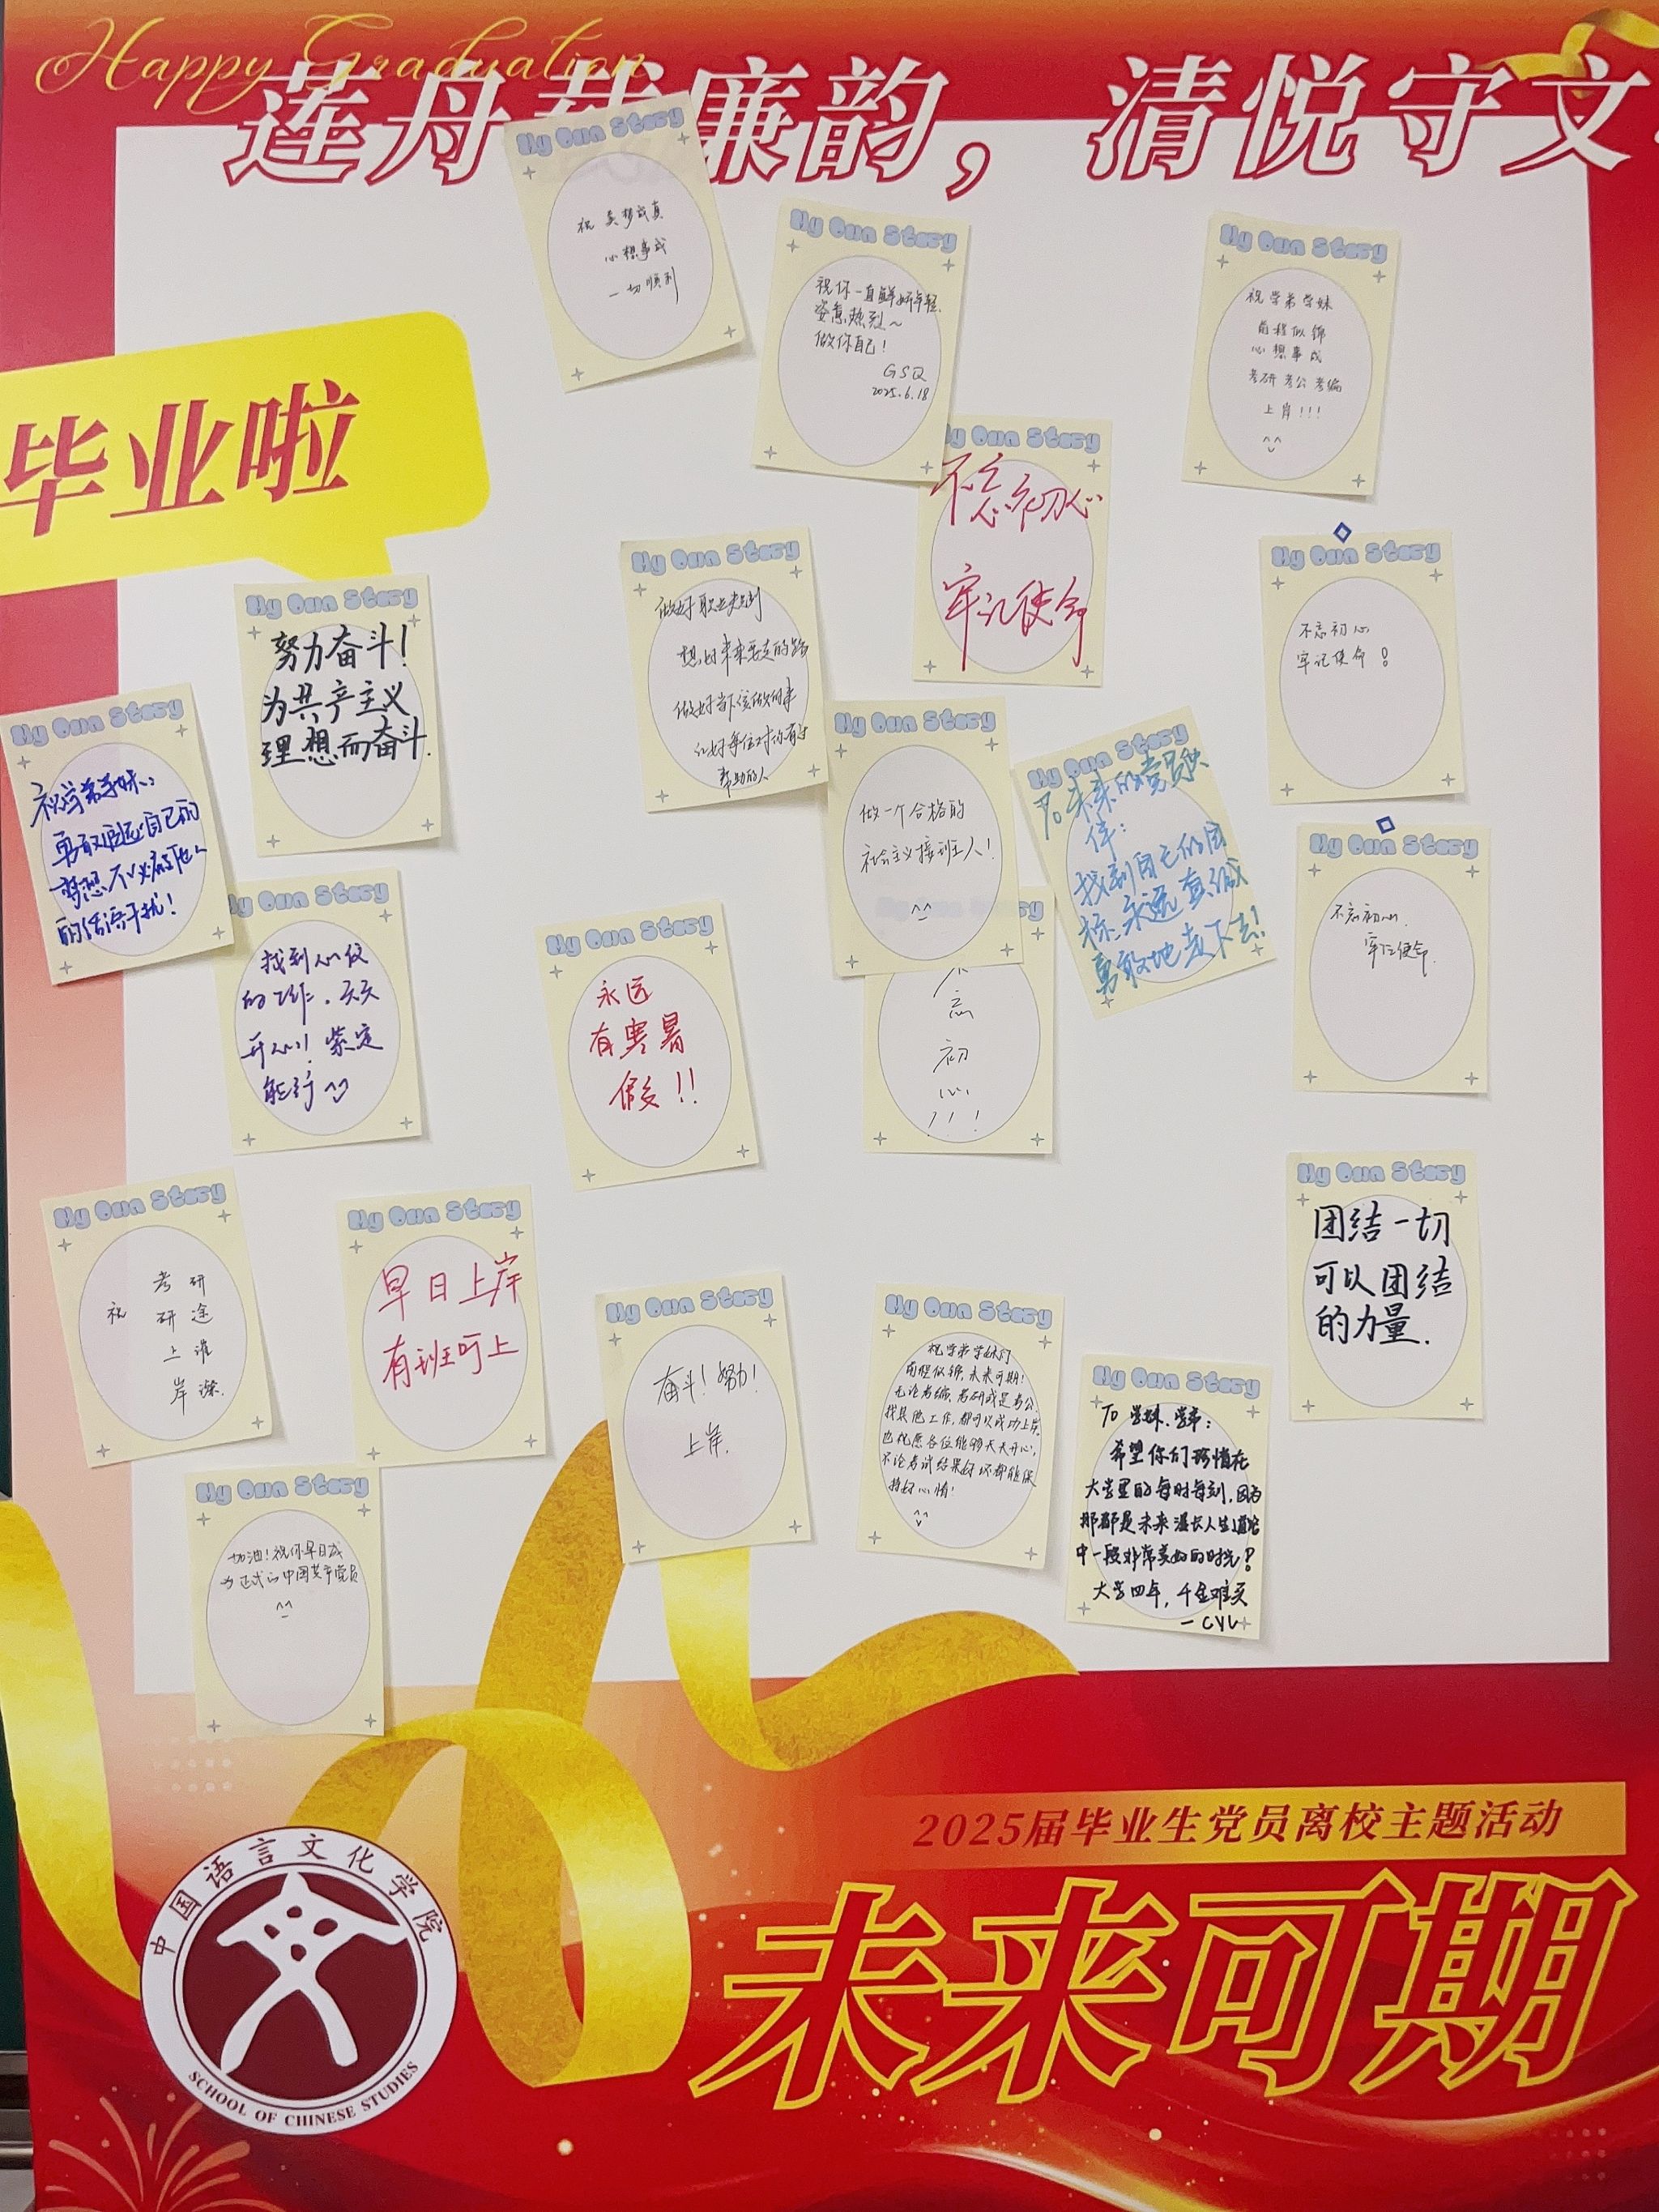 Happy Graduation
莲舟载廉韵，清悦守文
毕业啦
My Own Story
祝 美梦成真
心想事成
一切顺利
My Own Story
祝你一直鲜妍年轻.
姿意热烈～
做你自己！
GSQ
2025.6.18
My Own Story
祝学弟学妹
前程似锦
心想事成
考研考公考编
上岸！！！
My Own Story
不忘初心
牢记使命
My Own Story
努力奋斗！
为共产主义
理想而奋斗.
My Own Story
做好职业规划
想好未来要走的路
做好当下该做的事
记好每位对你有过
帮助的人
My Own Story
不忘初心
牢记使命！
My Own Story
祝学弟学妹:
勇敢追逐自己的
梦想不必在乎他人
的话语干扰！
My Own Story
做一个合格的
社会主义接班人！
^_^
My Own Story
To 未来的党员伙
伴：
找到自己的目
标、永远真诚
勇敢地走下去！
My Own Story
不忘初心.
牢记使命.
My Own Story
找到心仪
的工作. 天天
开心！紫定
能行
My Own Story
永远
有寒暑
假！！
不
忘
初
心
！！！
My Own Story
团结一切
可以团结
的力量.
My Own Story
祝
考研
研途
上谁
岸深.
My Own Story
早日上岸
有班可上
My Own Story
奋斗！努力！
上岸.
My Own Story
祝学弟学妹们
前程似锦,未来可期！
无论考编、考研或是考公、
找其他工作,都可以成功上岸。
也祝愿各位能够天天开心,
不论考试结果好坏都能保
持好心情！
My Own Story
To 学妹.学弟：
希望你们珍惜在
大学里的每时每刻,因为
那都是未来漫长人生道路
中一段非常美好的时光！
大学四年，千金难买
—CYL
My Own Story
加油！祝你早日成
为正式的中国共产党员
^_^
2025届毕业生党员离校主题活动
未来可期
中国语言文化学院
文
SCHOOL OF CHINESE STUDIES